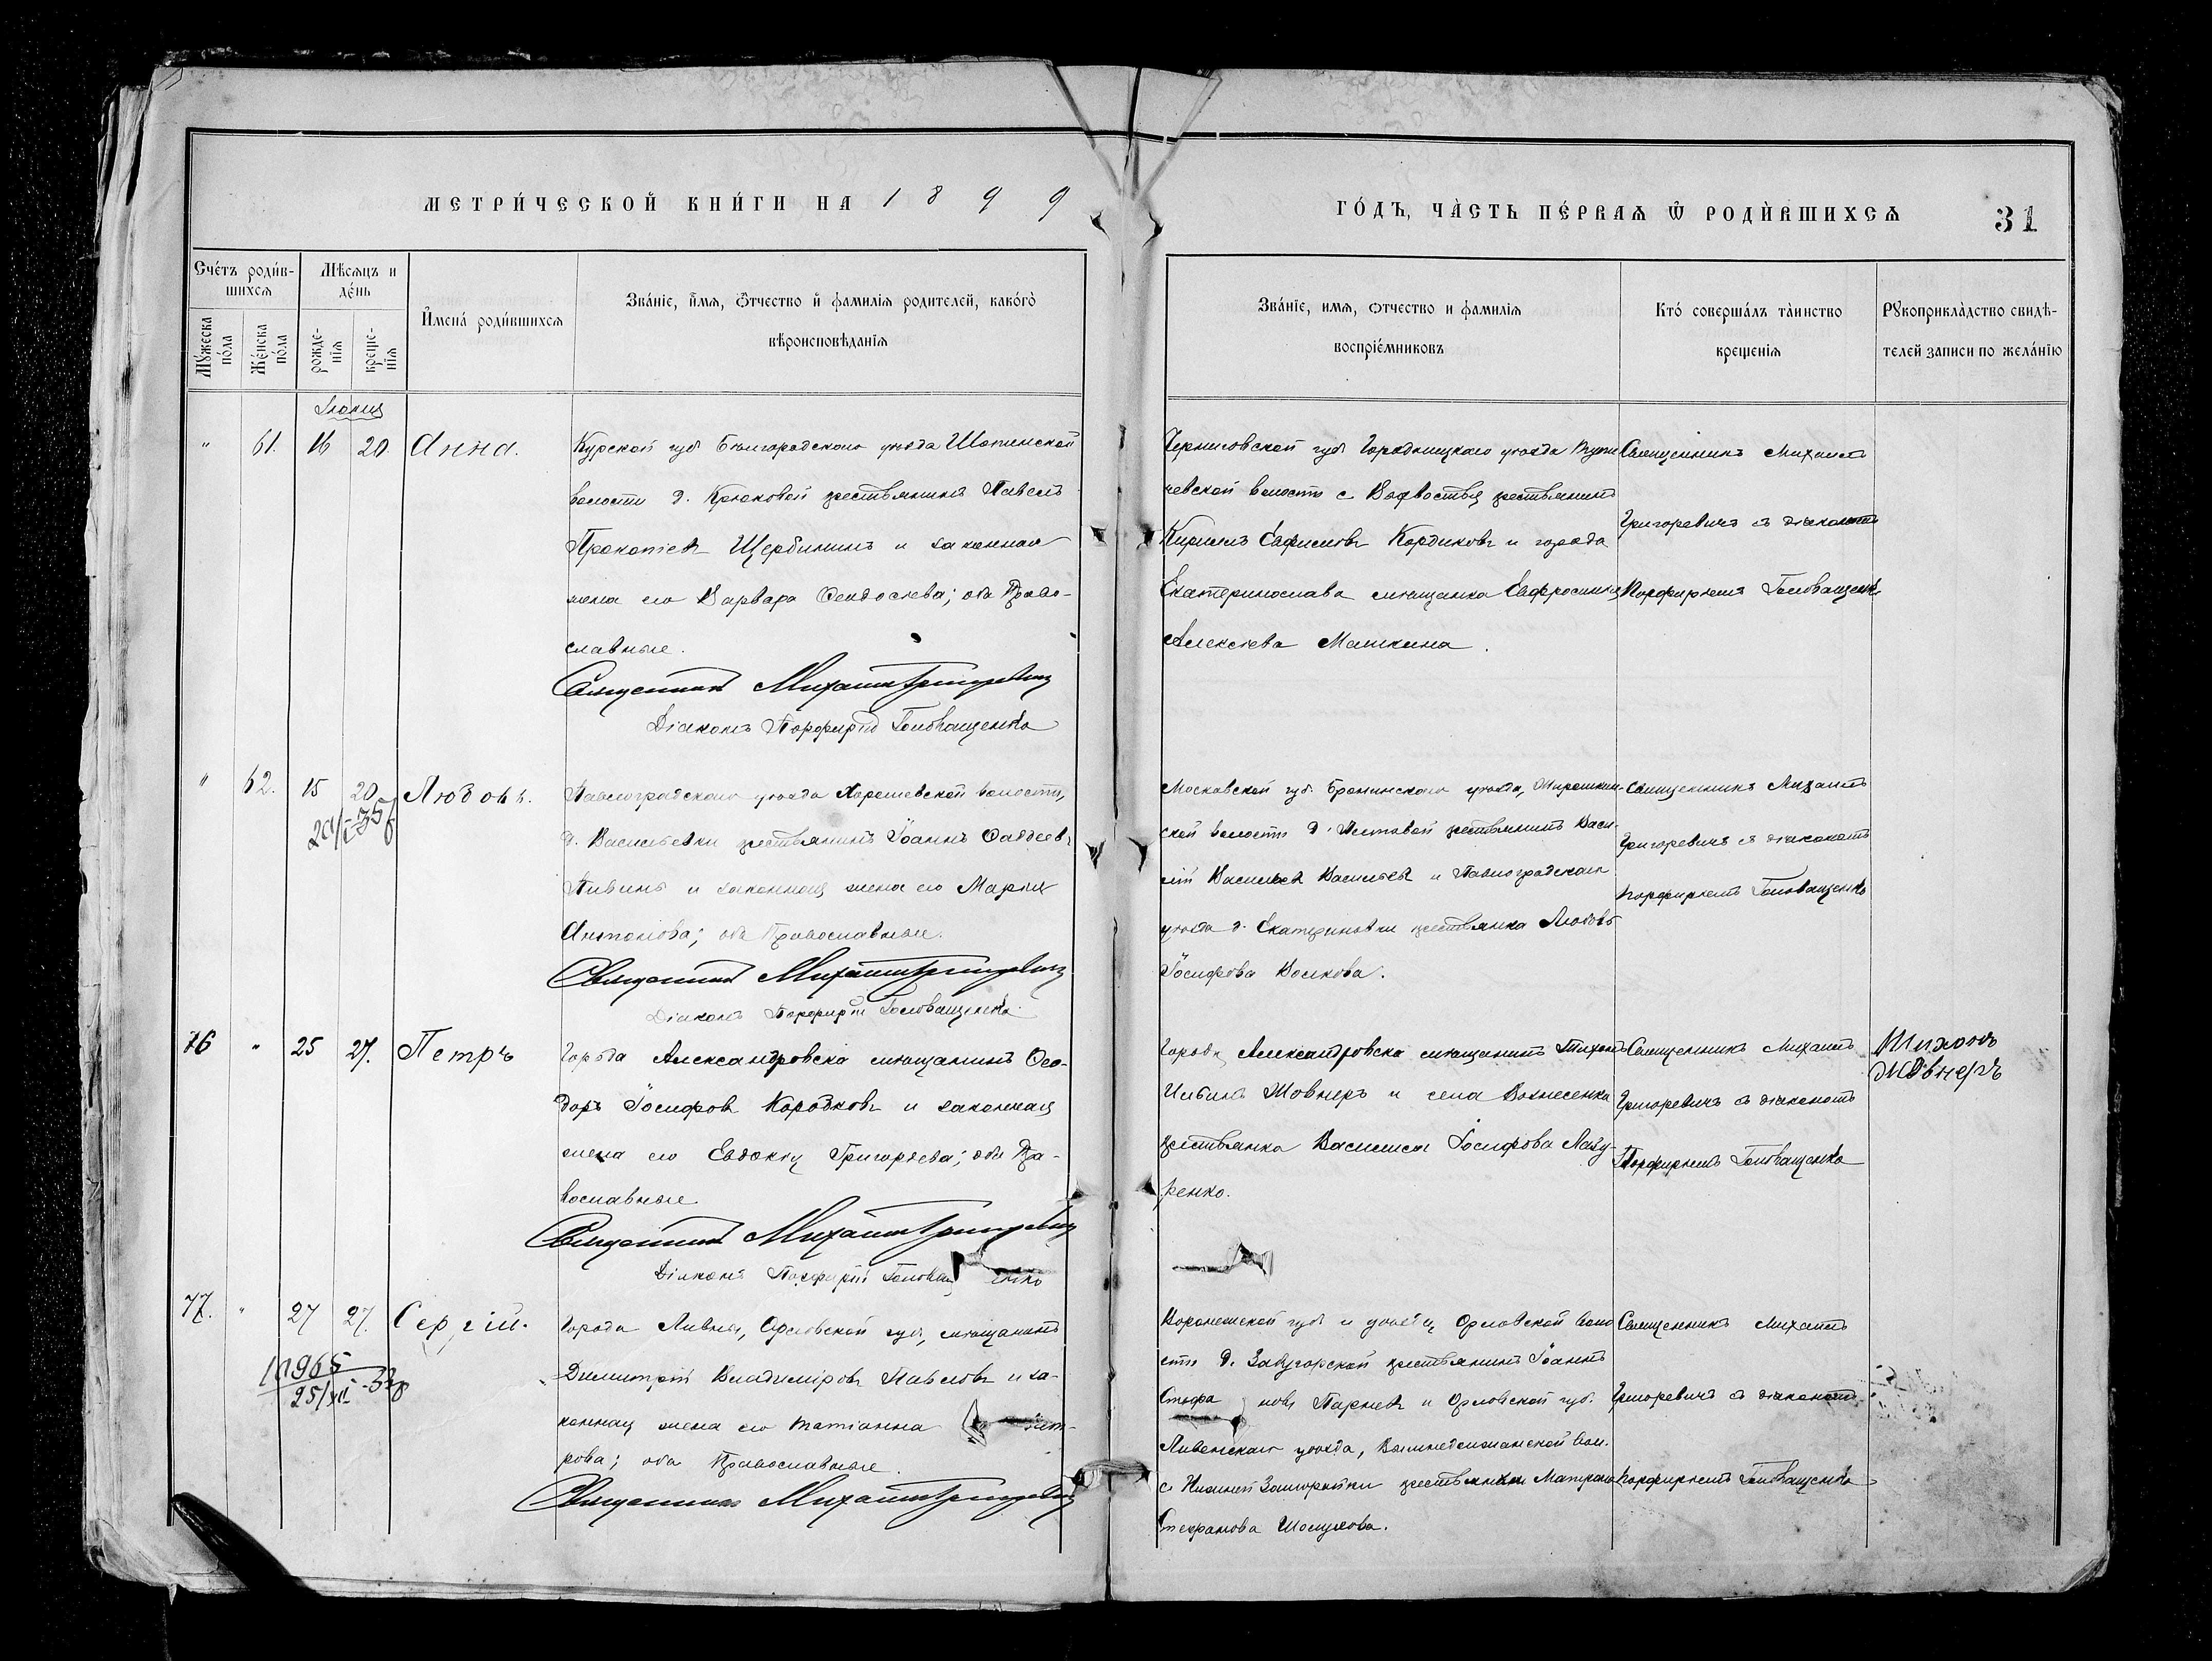 МЕТРИ́ЧЕСКОЙ КНИ́ГИ НА 1899
ГО́ДЪ, ЧА̀СТЬ ПЕ́РВАѦ Ѡ҆ РОДИ́ВШИХСѦ 31
Счéтъ роди́в-
шихсѧ
Мѣ́сѧцъ и
дéнь
Мꙋ́жеска
по́ла
Же́нска
по́ла
рожде-
нїѧ
креще-
нїѧ
И҆мена́ роди́вшихсѧ
Зва́нїе, и҆́мѧ, ѻ҆́тчество и҆ фамилїѧ родителей, како́гѡ
вѣроисповѣ́данїѧ
Зва́нїе, имѧ, ѻтчество и фамилїѧ
воспрїе́мниковъ
Кто́ соверша́лъ та̀инство
крещенїѧ
Рꙋкоприкла̀дство свидѣ́-
телей записи по жела́нїю
Іюнь
" 61. 16 20. Анна.
Курской губ Бѣлгородскаго уѣзда Шопинской
волости д. Крюковой крестьянинъ Павелъ
Прокопіевъ Щербининъ и законная
жена его Варвара Ѳеодосіева; оба Право-
славные.
Священникъ Михаилъ Григоревичъ
Діаконъ Порфирій Головащенко
Черниговской губ Городницкаго уѣзда
чевской волости с крестьянинъ
Кириллъ Евфимовъ Кордиковъ и города
Екатеринослава мѣщанка Евфросинія
Алексѣева Машкина.
Священникъ Михаилъ
Григоревичъ съ діакономъ
Порфиріемъ Головащенко
" 62. 15 20. Любовь.
Павлоградскаго уѣзда волости,
д. Васильевки крестьянинъ Іоаннъ Ѳаддеевъ
Пивинъ и законная жена его Марія
Антонова; оба Православные.
Священникъ Михаилъ Григоревичъ
Діаконъ Порфирій Головащенко
Московской губ. Бронницкаго уѣзда, Мирошкин-
ской волости д. крестьянинъ Васи-
лій Васильевъ Васильевъ и Павлоградскаго
уѣзда д. Екатериновки крестьянка Любовь
Іосифова Волкова.
Священникъ Михаилъ
Григоревичъ съ діакономъ
Порфиріемъ Головащенко
76 " 25 27. Петръ
Города Александровска мѣщанинъ Ѳео-
доръ Іосифовъ Коробковъ и законная
жена его Евдокія Григоріева; оба Пра-
вославные
Священникъ Михаилъ Григоревичъ
Діаконъ Порфирій Головащенко
Города Александровска мѣщанинъ Тихонъ
Шовнеръ и села Вознесенка
крестьянка Василиса Іосифова Лазу-
ренко.
Священникъ Михаилъ
Григоревичъ съ діакономъ
Порфиріемъ Головащенко
Тихонъ
Шовнеръ
77. " 27 27. Сергій.
10965
Города Ливны, Орловской губ, мѣщанинъ
Димитрій Владиміровъ Павловъ и за-
конная жена его Татіанна
рова; оба Православные.
Священникъ Михаилъ Григоревичъ
Воронежской губ и уѣзда, Орловской воло
сти д. крестьянинъ Іоаннъ
Стефановъ Парневъ и Орловской губ.
Ливенскаго уѣзда, вол.
с. Нижней крестьянка Матрона
Стефанова Шолухова.
Священникъ Михаилъ
Григоревичъ съ діакономъ
Порфиріемъ Головащенко